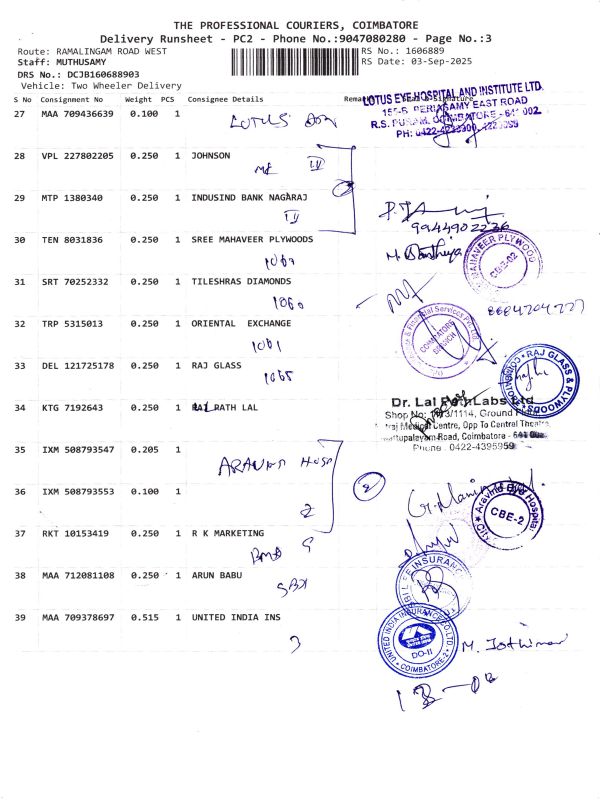 THE PROFESSIONAL COURIERS, COIMBATORE
Delivery Runsheet - PC2 - Phone No.:9047080280 - Page No.:3
Route: RAMALINGAM ROAD WEST
RS No.: 1606889
Staff: MUTHUSAMY
RS Date: 03-Sep-2025
DRS No.: DCJB160688903
Vehicle: Two Wheeler Delivery
S No Consignment No Weight PCS Consignee Details
LOTUS EYE HOSPITAL AND INSTITUTE LTD.
155-B, PERIASAMY EAST ROAD
R.S. PURAM, COIMBATORE - 641 002.
PH: 0422-4239900, 4239999
27 MAA 709436639 0.100 1 LOTUS
28 VPL 227802205 0.250 1 JOHNSON
29 MTP 1380340 0.250 1 INDUSIND BANK NAGARAJ
9944902236
30 TEN 8031836 0.250 1 SREE MAHAVEER PLYWOODS
1060
MAHAVEER PLYWOOD
CBE-02
31 SRT 70252332 0.250 1 TILESHRAS DIAMONDS
1060
32 TRP 5315013 0.250 1 ORIENTAL EXCHANGE
1061
& Financial Services Pvt. Ltd.
COIMBATORE
BRANCH
33 DEL 121725178 0.250 1 RAJ GLASS
1065
RAJ GLASS & PLYWOODS
34 KTG 7192643 0.250 1 RATH LAL
Dr. Lal PathLabs Ltd
Shop No: 1113/1114, Ground
Medical Centre, Opp To Central Theatre,
Mettupalayam Road, Coimbatore -
Phone : 0422-4395959
35 IXM 508793547 0.205 1
ARAVIND HOSP
36 IXM 508793553 0.100 1
2
Aravind Eye Hospital
CBE-2
37 RKT 10153419 0.250 1 R K MARKETING
38 MAA 712081108 0.250 1 ARUN BABU
SBI
LIFE INSURANCE
39 MAA 709378697 0.515 1 UNITED INDIA INS
UNITED INDIA INSURANCE CO. LTD.
DO-II
COIMBATORE-2
M. Jothimani